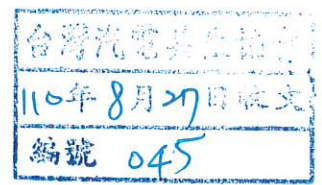 台灣汽電共生
110年8月27日收文
編號 045